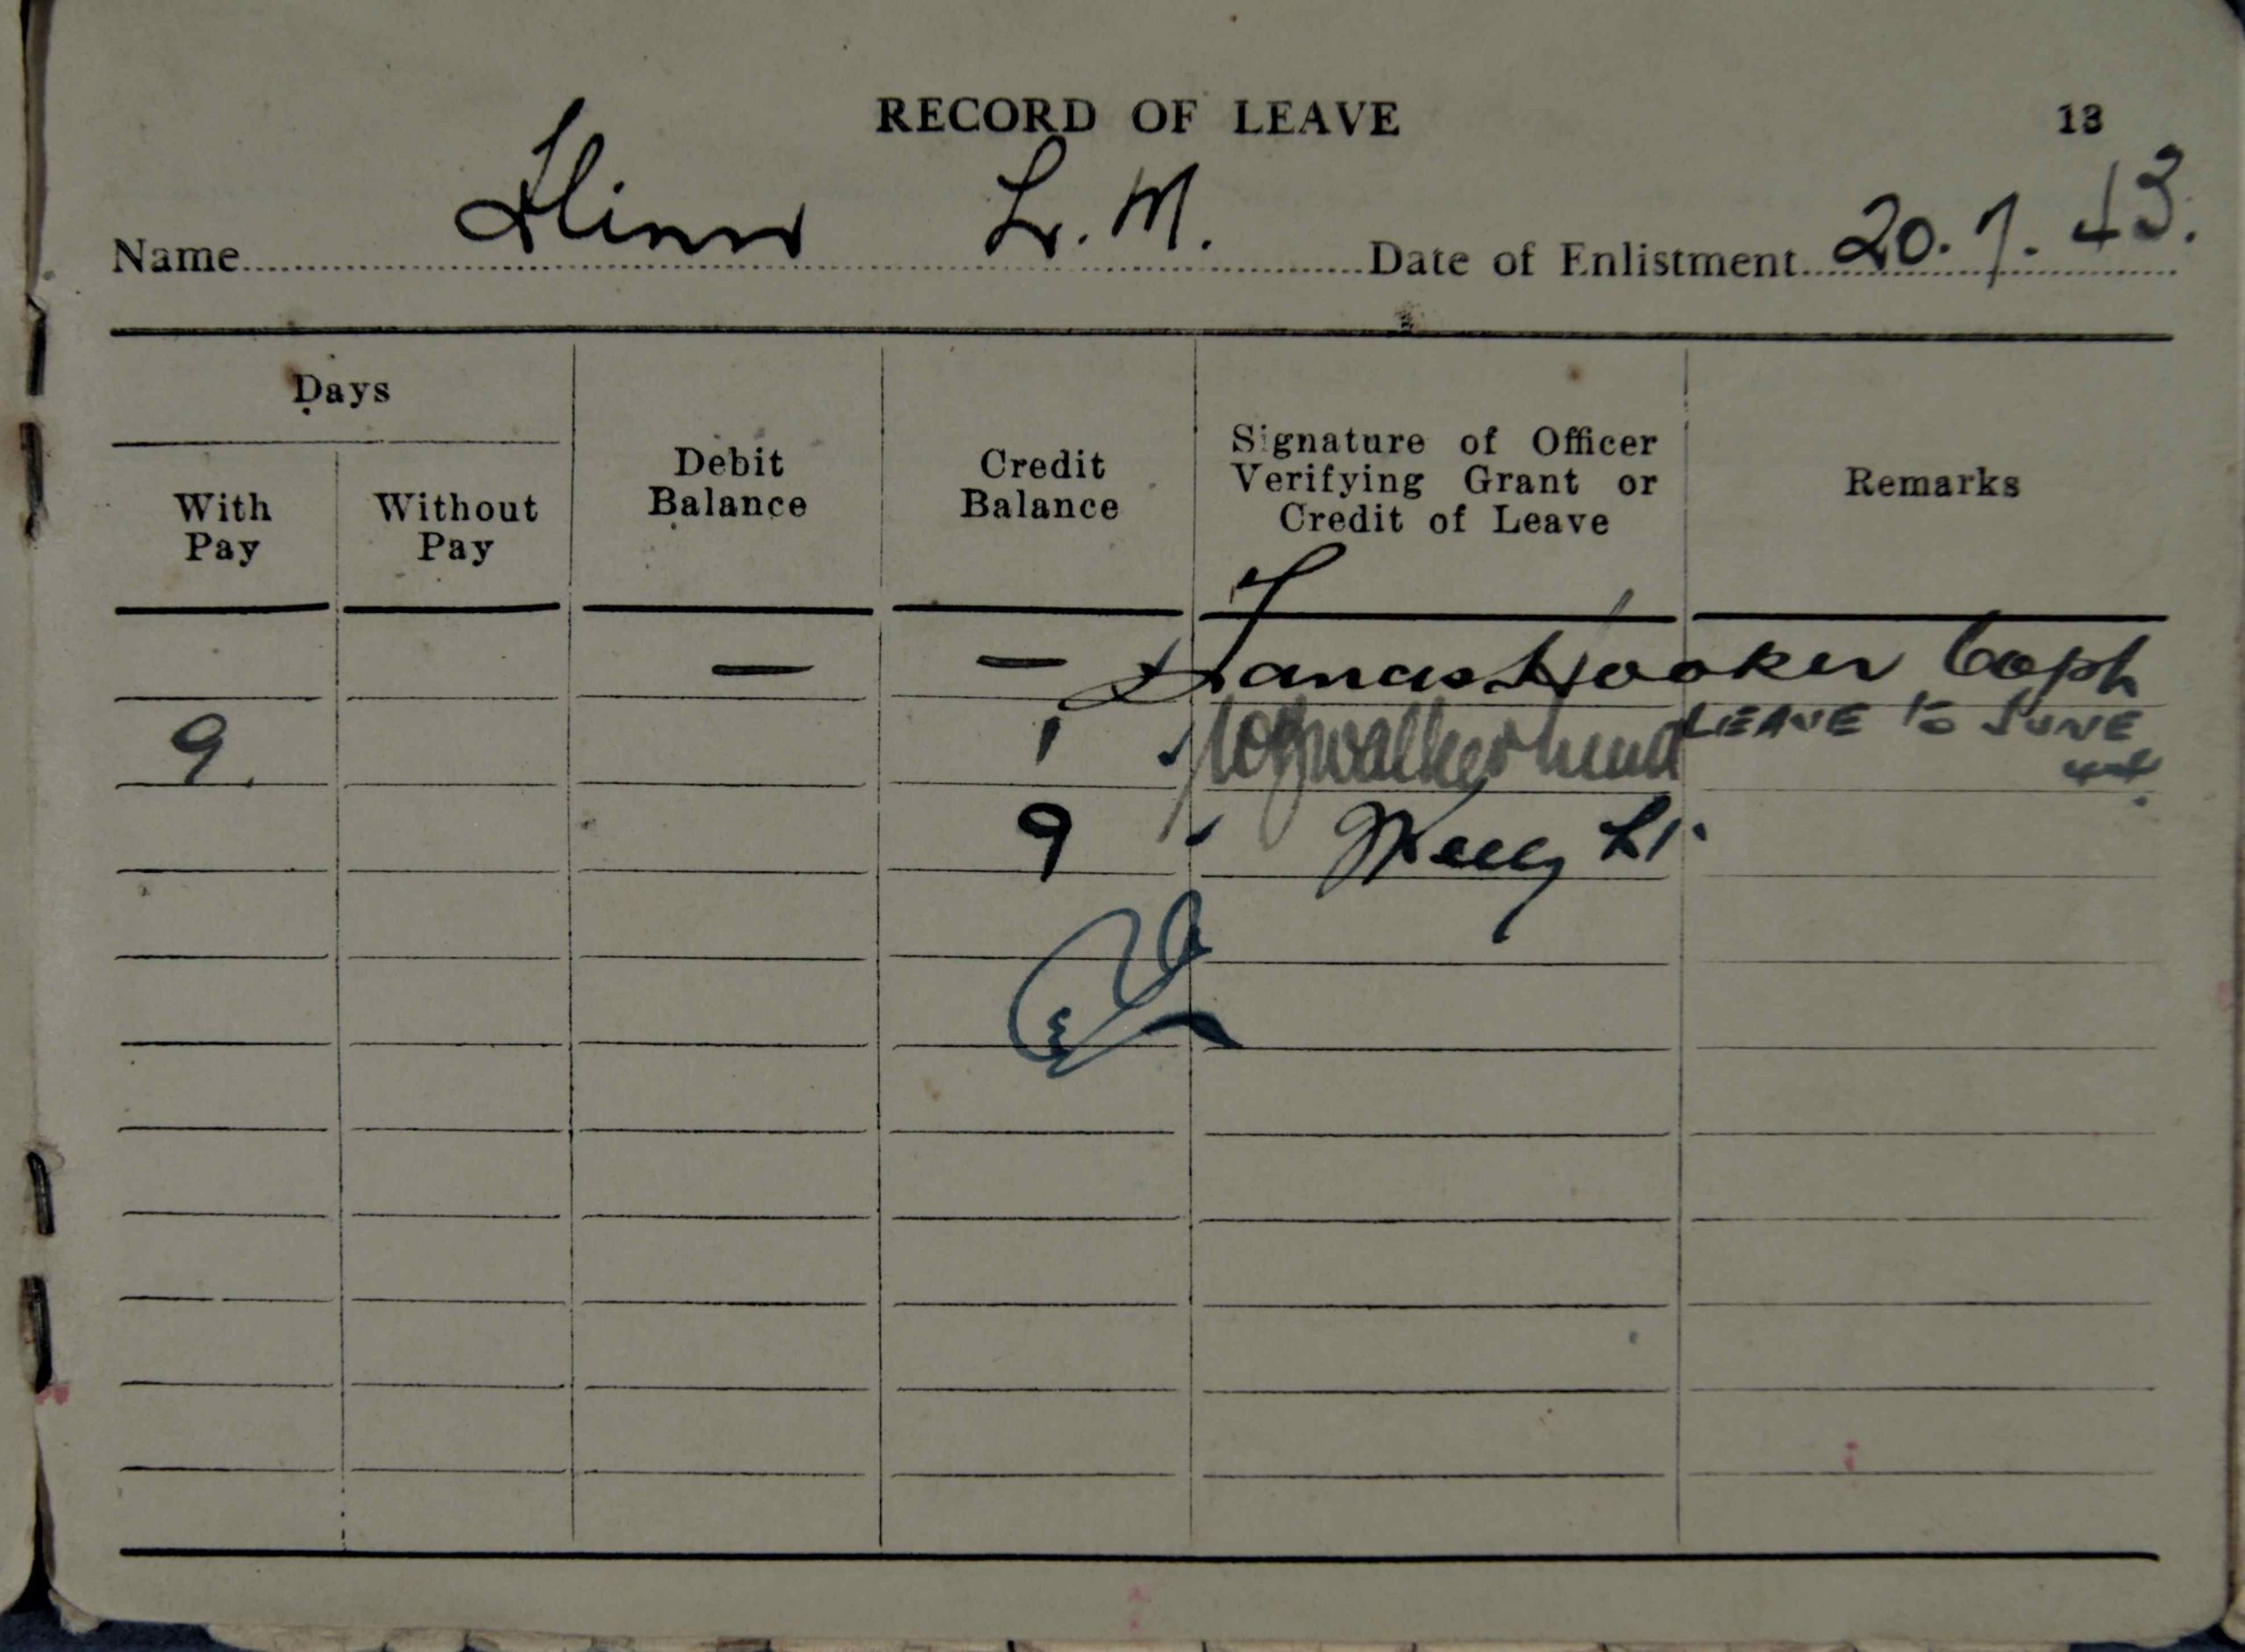 RECORD OF LEAVE 13
Name L. M. Date of Enlistment 20. 7. 43.
Days
With Pay
Without Pay
Debit Balance
Credit Balance
Signature of Officer Verifying Grant or Credit of Leave
Remarks
— — Hooker Capt
9. 1 LEAVE TO JUNE
44.
9 Kelly Lt.